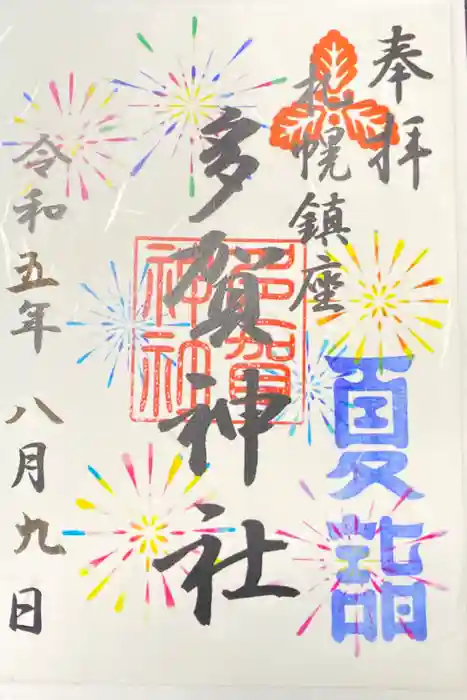 奉拝
札幌鎮座
夏詣
多賀神社
多賀
神社
令和五年 八月九日